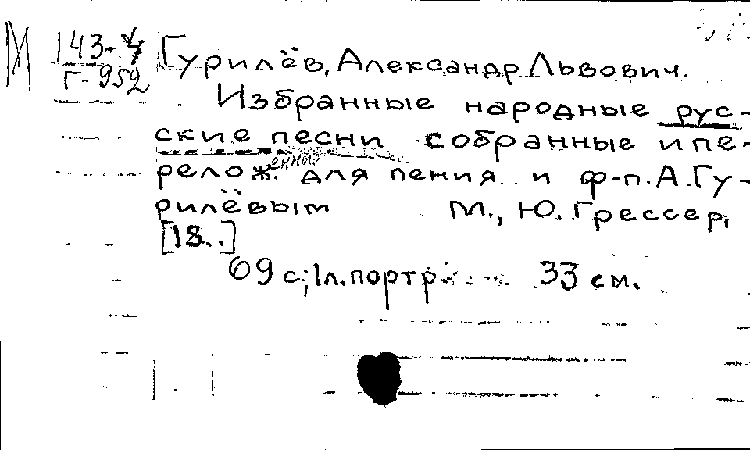 М 143-4 Гурилёв, Александр Львович.
Г-952
Избранные народные рус-
ские песни собранные и пе-
релож.енные для пения и ф-п. А. Гу-
рилёвым М., Ю. Грессер,
[18..]
69 с; 1л. портр 33 см.